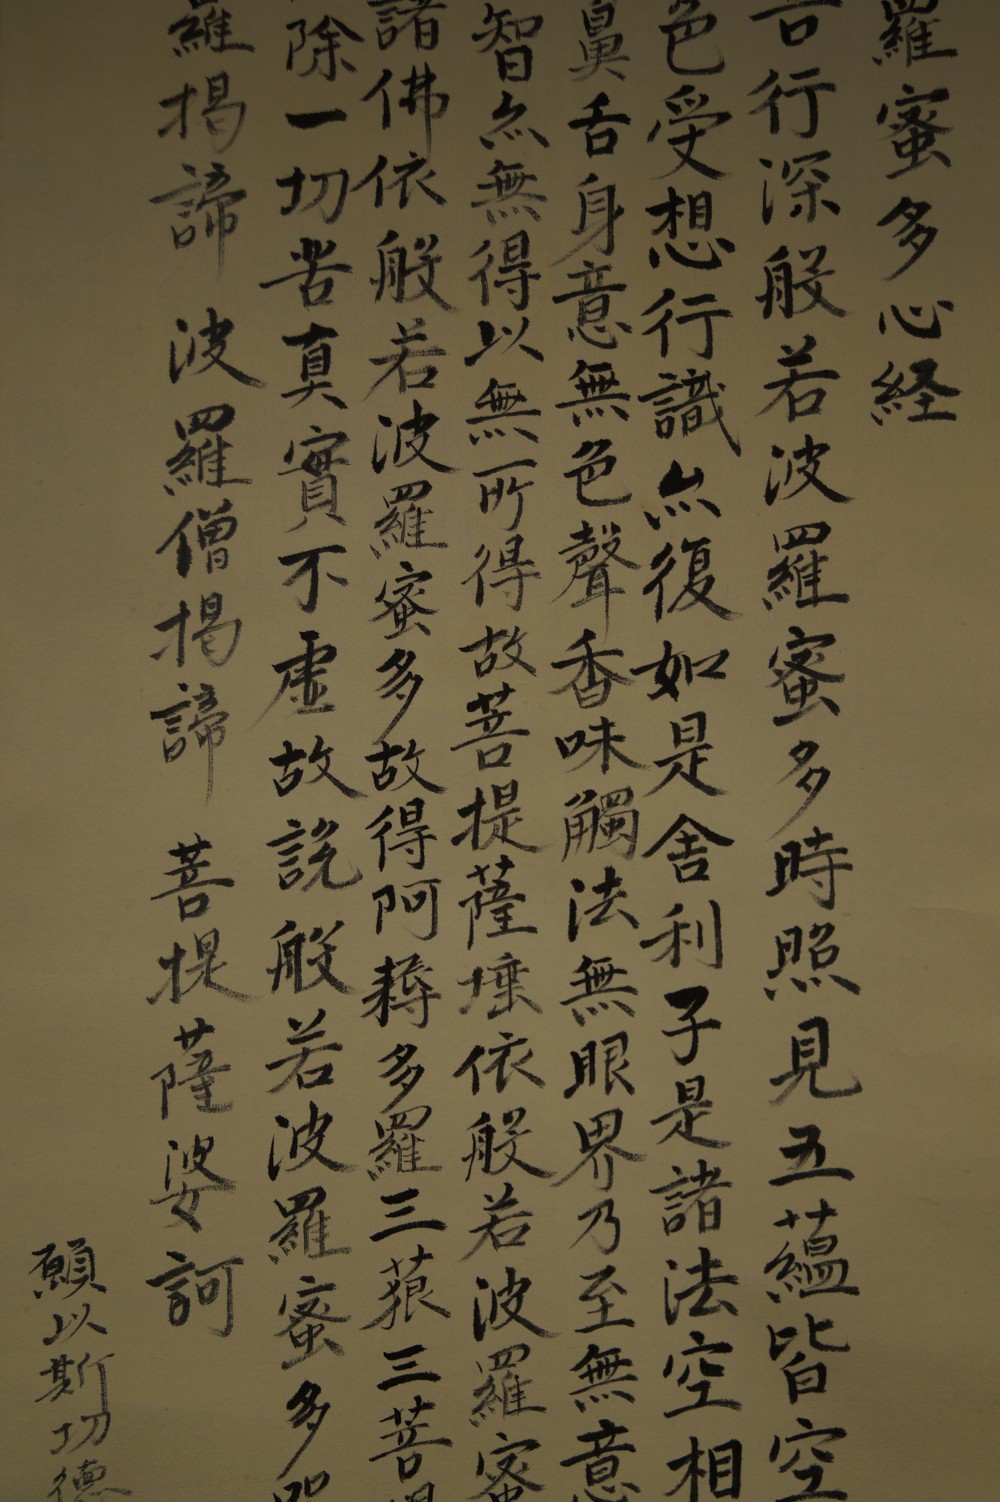 羅蜜多心経
行深般若波羅蜜多時照見五蘊皆空
色受想行識亦復如是舎利子是諸法空相
鼻舌身意無色聲香味觸法無眼界乃至無意
智亦無得以無所得故菩提薩埵依般若波羅蜜
諸佛依般若波羅蜜多故得阿耨多羅三藐三菩提
除一切苦真實不虚故説般若波羅蜜多呪
羅揭諦 波羅僧揭諦 菩提薩婆訶
願以斯功德